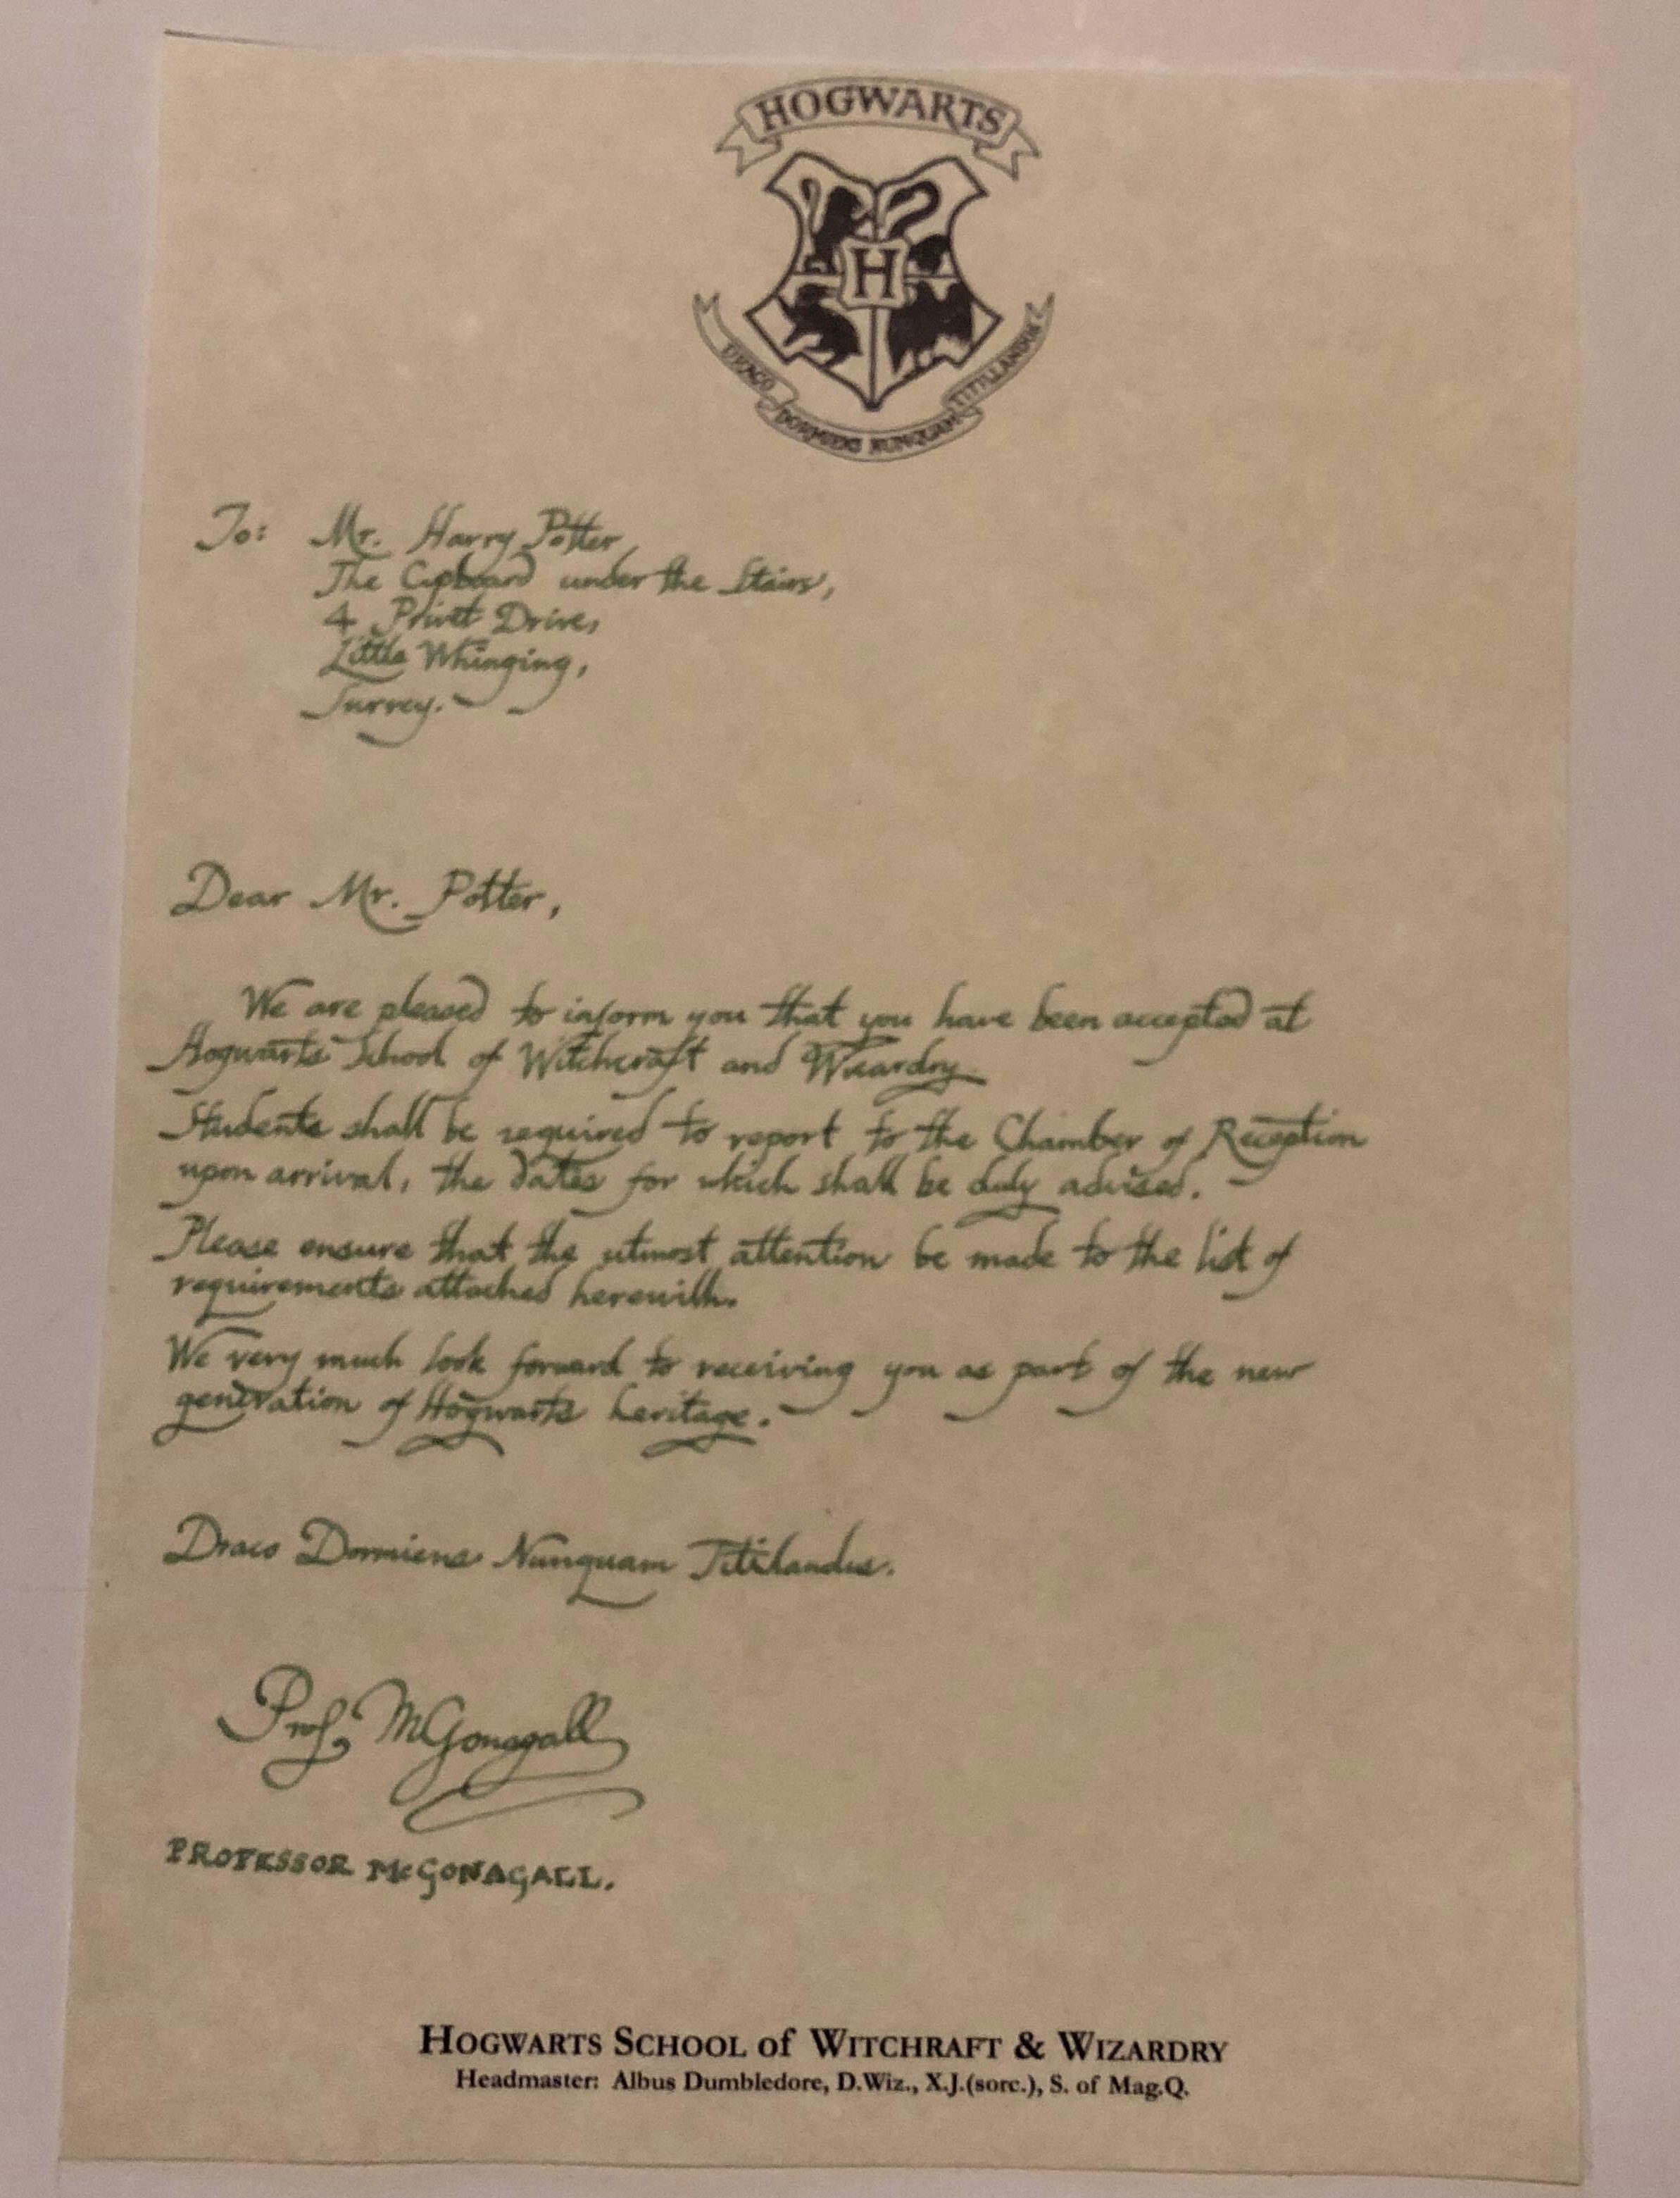 HOGWARTS
H
DRACO DORMIENS NUNQUAM TITILLANDUS
To: Mr. Harry Potter,
The Cupboard under the Stairs,
4 Privet Drive,
Little Whinging,
Surrey.
Dear Mr. Potter,
We are pleased to inform you that you have been accepted at
Hogwarts School of Witchcraft and Wizardry.
Students shall be required to report to the Chamber of Reception
upon arrival, the dates for which shall be duly advised.
Please ensure that the utmost attention be made to the list of
requirements attached herewith.
We very much look forward to receiving you as part of the new
generation of Hogwarts heritage.
Draco Dormiens Nunquam Titilandus.
Prof. McGonagall
PROFESSOR McGONAGALL.
HOGWARTS SCHOOL of WITCHRAFT & WIZARDRY
Headmaster: Albus Dumbledore, D.Wiz., X.J.(sorc.), S. of Mag.Q.